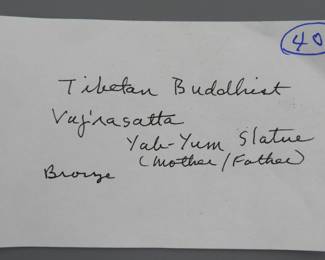 40
Tibetan Buddhist
Vajrasatta
Yab-Yum Statue
(Mother/Father)
Bronze